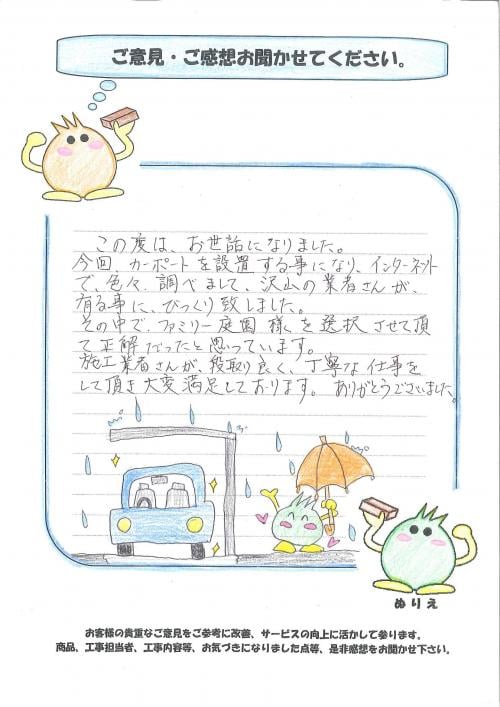 ご意見・ご感想お聞かせてください。
この度は、お世話になりました。
今回 カーポートを設置する事になり、インターネット
で、色々、調べまして、沢山の業者さんが、
有る事に、びっくり致しました。
その中で、ファミリー庭園 様 を 選択 させて頂
て正解だったと思っています。
施工業者さんが、段取り良く、丁寧な仕事を
して頂き大変満足しております。 ありがとうございました。
ぬりえ
お客様の貴重なご意見をご参考に改善、サービスの向上に活かして参ります。
商品、工事担当者、工事内容等、お気づきになりました点等、是非感想をお聞かせ下さい。